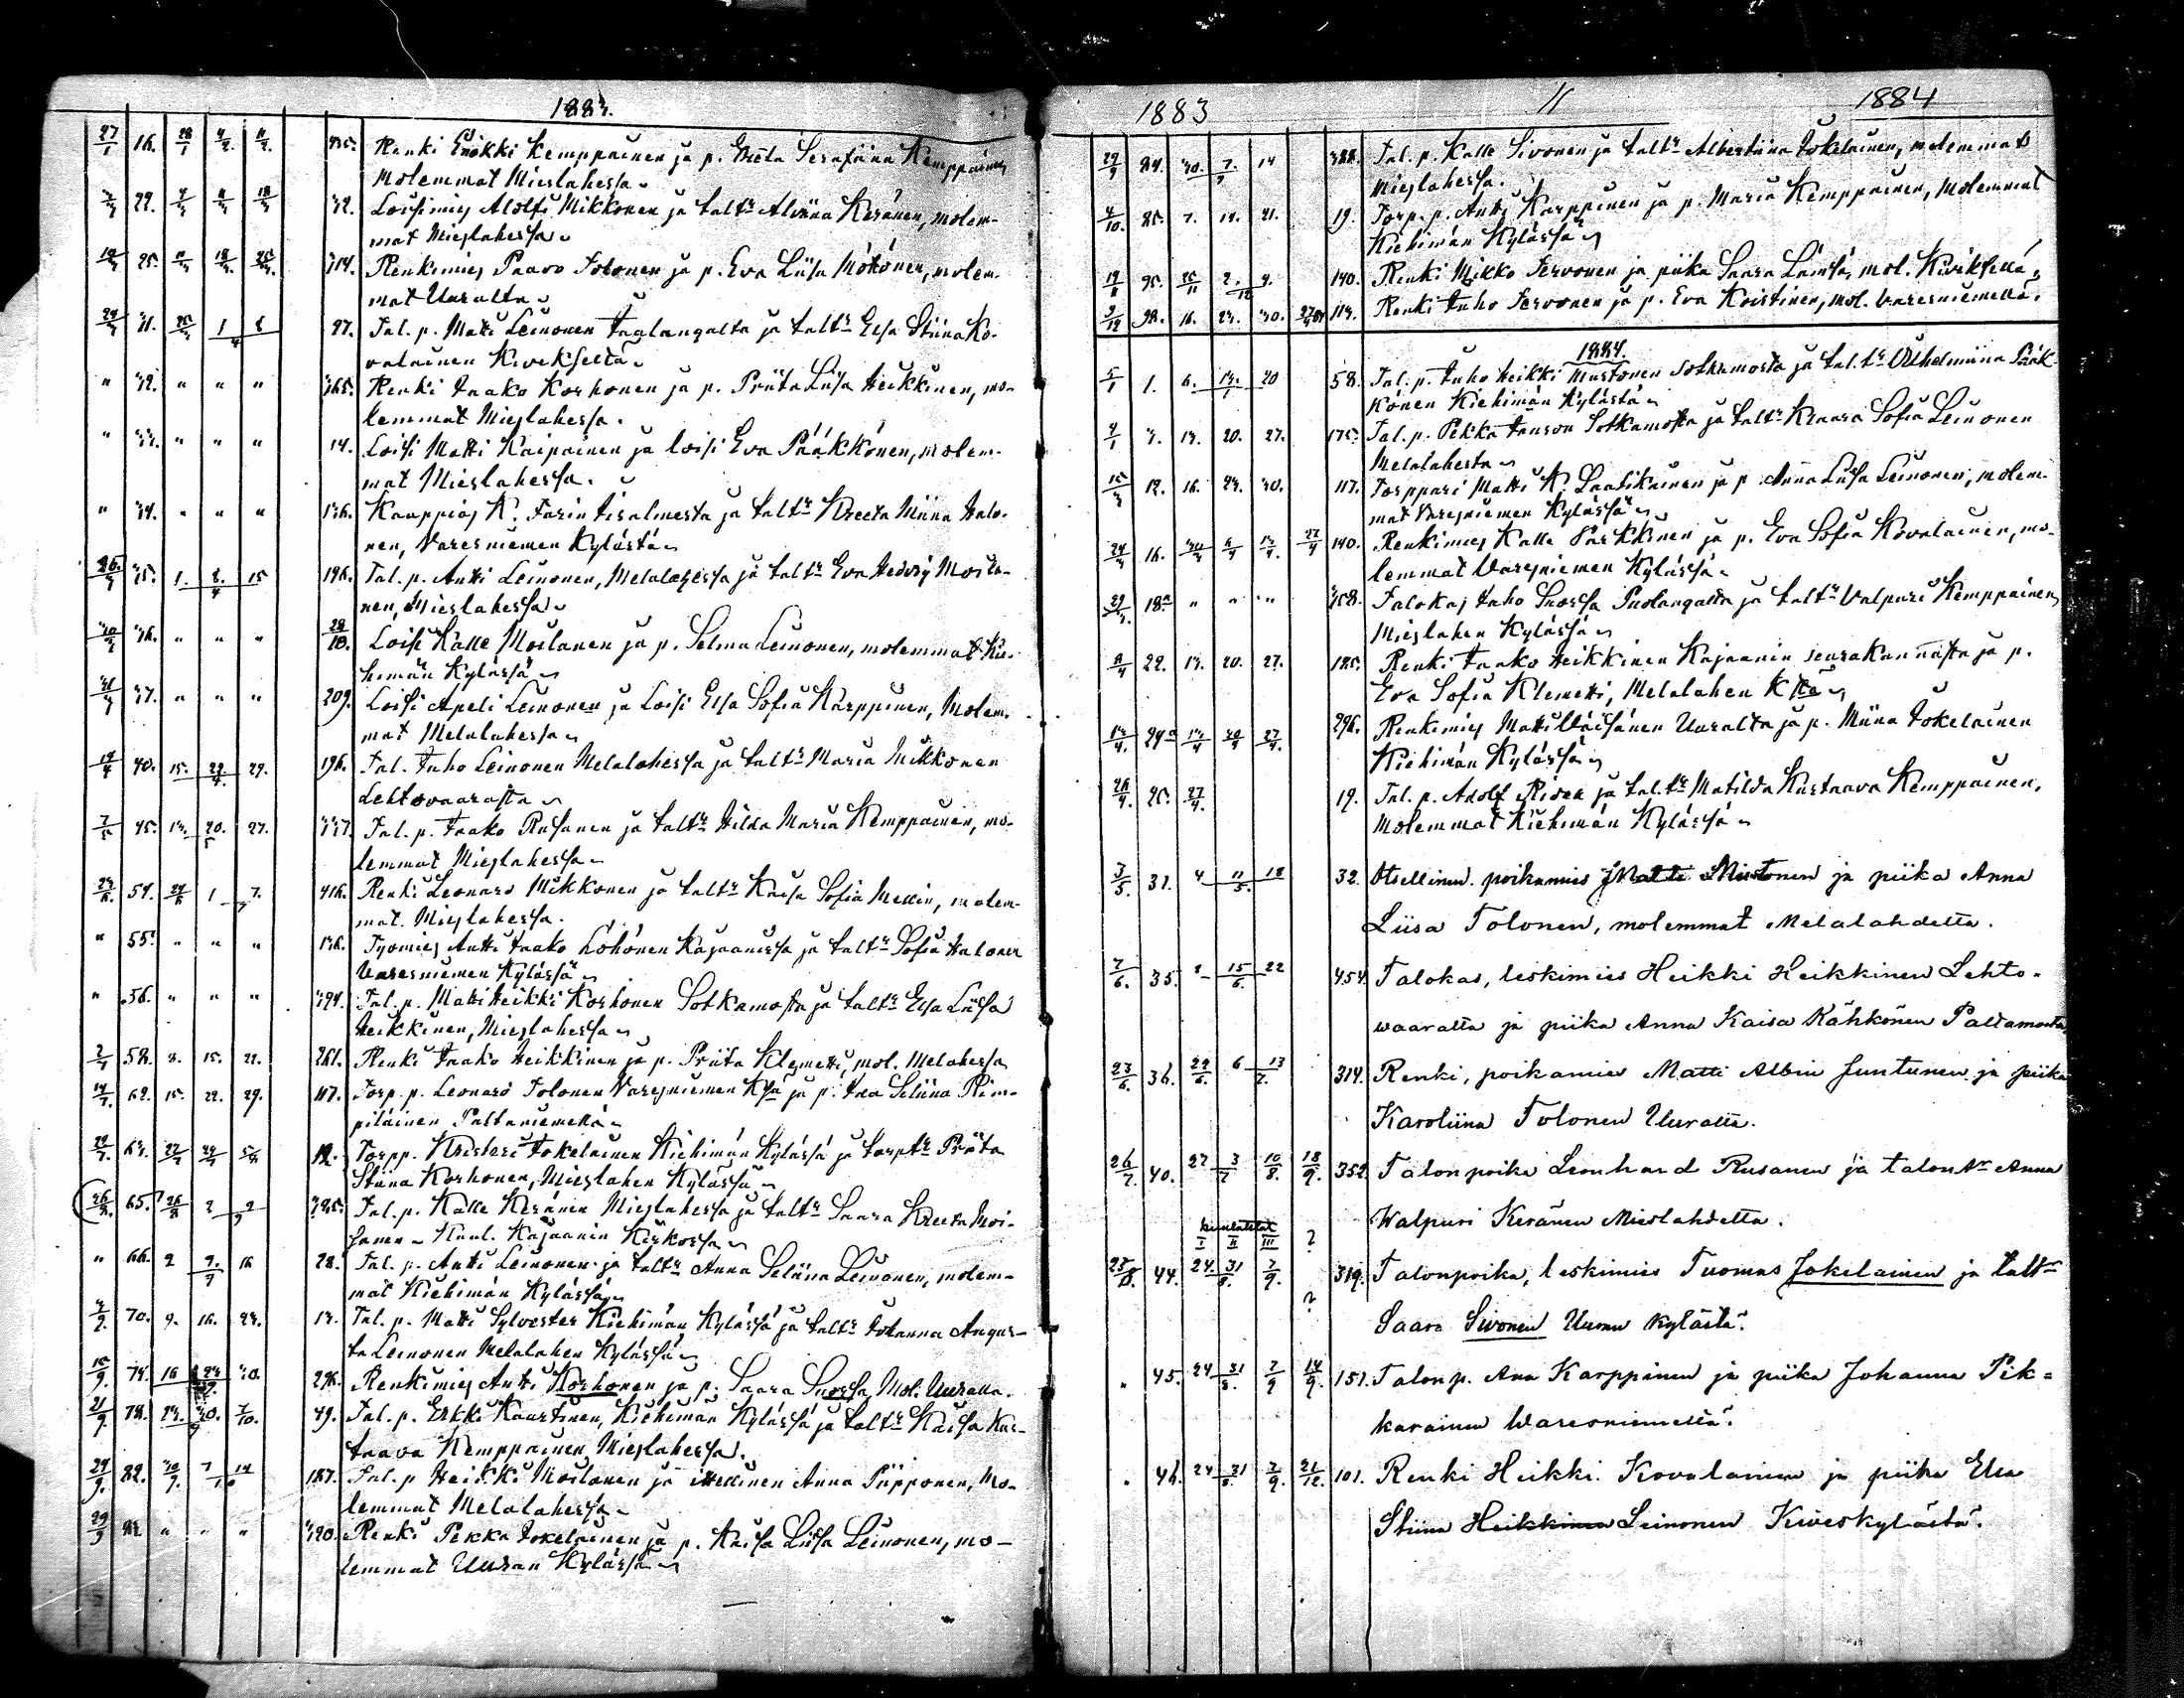 1883.
27/1 16. 28/1 4/2. 11/2. 335. Renki Erikki Kemppainen ja p. Greta Serafiina Kemppainen
Molemmat Mieslahessa
3/3 22. 4/3 11/3 18/3 32. Loisimies Adolfi Mikkonen ja taltr Alviina Keränen, molem-
mat Mieslahessa
25. 11/3 18/3. 25/3. 314. Renkimies Paavo Tolonen ja p. Eva Liisa Mökönen, molem-
mat Uuralta
24/3 31. 25/3 1 8 27. Tal. p. Matti Leinonen ja taltr Elsa Stiina Ko-
valainen Kivekseltä
" 32. " " " 365. Renki Jaako Korhonen ja p. Priita Liisa Heikkinen, mo-
lemmat Mieslahessa.
" 33. " " " 14. Loisi Matti Kaipainen ja loisi Eva Pääkkönen, molem-
mat Mieslahessa.
" 34. " " " 136. Kauppias K. Farin Iisalmesta ja taltr Kreeta Miina Halo-
nen, Varesniemen Kylästä
26./3 35. 1. 8./4 15 196. Tal. p. Antti Leinonen, Melalahessa ja taltr Eva Hedvig Moila-
nen, Mieslahessa
30/3 36. " " " 28/10. Loisi Kalle Moilanen ja p. Selma Leinonen, molemmat Kie-
himän Kylässä
31/3 37. " " " 209. Loisi Apeli Leinonen ja Loisi Elsa Sofia Karppinen, Molem-
mat Melalahessa
14/4 40. 15. 22/4. 29. 196. Tal. Juho Leinonen Melalahessa ja taltr Maria Mikkonen
Lehtovaarasta
7/5 45. 13. 20./5 27. 337. Tal. p. Jaako Rusanen ja taltr Hilda Maria Kemppainen, mo-
lemmat Mieslahessa
54. 1 7. 416. Renki Leonard Mikkonen ja taltr Kaisa Sofia Mellin, molem-
mat. Mieslahessa.
" 55. " " " 136. Työmies Antti Jaako Löhönen Kajaanissa ja taltr Sofia Halonen
Varesniemen Kylässä
" 56. " " " 394. Tal. p. Matti Heikki Korhonen Sotkamosta ja taltr Elsa Liisa
Heikkinen, Mieslahessa
2/7 58. 8. 15. 22. 261. Renki Jaako Heikkinen ja p. Priita Klemetti, mol. Melalahessa
14/7. 62. 15. 22. 29. 117. Torp. p. Leonard Tolonen Varesniemen Kylä ja p. Iida Seliina Rim-
piläinen Paltaniemellä
63. 22/7 29/7 5/8 12. Torpp. Kristeri Jokelainen Kiehimän Kylässä ja torptr Priita
Stiina Korhonen, Mieslahen Kylässä
26/8. 65. 26/8 2 9 325. Tal. p. Kalle Keränen Mieslahessa ja taltr Saara Kreeta Moi-
lanen - Kuul. Kajaanin Kirkossa
" 66. 2 9./9 16 28. Tal. p. Antti Leinonen ja taltr Anna Seliina Leinonen, molem-
mat Kiehimän Kylässä
70. 9. 16. 23. 13. Tal. p. Matti Sylvester Kiehimän Kylässä ja taltr Johanna Augus-
ta Leinonen Melalahen Kylässä
15/9. 74. 16 23/9. 30. 296. Renkimies Antti Korhonen ja p. Saara Suorsa, Mol. Uuralla.
21/9 78. 23. 30. 7/10. 49. Tal. p. Erkki Kaartinen, Kiehimän Kylässä ja taltr Kaisa Kus-
taava Kemppainen Mieslahessa.
29/9. 82. 30/9. 7 14/10 187. Tal. p Heikki Moilanen ja itsellinen Anna Piipponen, Mo-
lemmat Melalahessa
29/9 " " " 320. Renki Pekka Jokelainen ja p. Kaisa Liisa Leinonen, mo-
lemmat Uuran Kylässä
1883 11 1884
29/9 84. 30. 7. 14 388. Tal. p. Kalle Sivonen ja taltr Albertiina Jokelainen, molemmat
Mieslahessa.
4/10. 85. 7. 14. 21. 19. Torp. p. Antti Karppinen ja p. Maria Kemppainen, Molemmat
Kiehimän Kylässä
95. 25/11 2./12 9. 140. Renki Mikko Tervonen ja piika Saara Lämsä, mol. Kiveksellä,
3/12 98. 16. 23. 30. 114. Renki Juho Tervonen ja p. Eva Koistinen, mol. Varesniemellä.
1884.
5/1 1. 6. 13./1 20 58. Tal. p. Juho Heikki Mustonen Sotkamosta ja tal.tr Vilhelmiina Pääk-
könen Kiehimän Kylästä
3. 13. 20. 27. 175. Tal. p. Pekka Jauson Sotkamosta ja taltr Klaara Sofia Leinonen
Melalahesta
12. 16. 23. 30. 117. Torppari Matti K. Laatikainen ja p. Anna Liisa Leinonen, molem-
mat Varesniemen Kylässä
24/3 16. 30/3 6/4 13/4. 27/4 140. Renkimies Kalle Pärkkinen ja p. Eva Sofia Kovalainen, mo-
lemmat Varesniemen Kylässä
18a " " " 358. Talokas Juho Suorsa Puolangalta ja taltr Valpuri Kemppainen
Mieslahen Kylässä
22. 13. 20. 27. 185. Renki Jaako Heikkinen Kajaanin seurakunnasta ja p.
Eva Sofia Klemetti, Melalahen Kltä
13/4. 24a 13/4 20/4 27/4. 296. Renkimies Matti Väisänen Uuralta ja p. Miina Jokelainen
Kiehimän Kylässä
26/4. 25. 27/4. 19. Tal. p. Adolf Risen ja tal.tr Matilda Kustaava Kemppainen,
Molemmat Kiehimän Kylässä
3/5. 31. 4 11/5. 18 32. Itsellinen poikamies Matti Mustonen ja piika Anna
Liisa Tolonen, molemmat Melalahdelta.
7/6. 35. 8 15/6. 22 454. Talokas, leskimies Heikki Heikkinen Lehto-
waaralta ja piika Anna Kaisa Kähkönen Paltamosta
23/6. 36. 29/6. 6 13/7. 314. Renki, poikamies Matti Albin Juntunen ja piika
Karoliina Tolonen Uuralta.
26/7. 40. 27 3 10/8. 18/9. 352. Talonpoika Leonhard Rusanen ja talontr Anna
Walpuri Keränen Mieslahdelta.
kuulutetut
I II III ?
23/8. 44. 24 31/8. 7/9. ? 319. Talonpoika, leskimies Tuomas Jokelainen ja taltr
Saara Sivonen Uuran kylästä.
" 45. 24 31/8. 7/9 14/9. 151. Talonp. Ana Karppinen ja piika Johanna Pik-
karainen Waresniemeltä.
" 46. 24 31/8. 7/9. 21/12. 101. Renki Heikki Kovalainen ja piika Elsa
Stiina Heikkinen Leinonen Kiveskylästä.